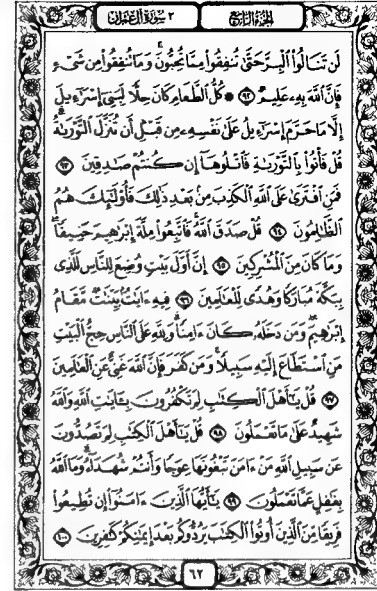 الجزء الرابع ٣ سورة آل عمران
لَن تَنَالُوا۟ ٱلْبِرَّ حَتَّىٰ تُنفِقُوا۟ مِمَّا تُحِبُّونَ ۚ وَمَا تُنفِقُوا۟ مِن شَىْءٍ
فَإِنَّ ٱللَّهَ بِهِۦ عَلِيمٌ ٩٢ ۞ كُلُّ ٱلطَّعَامِ كَانَ حِلًّا لِّبَنِىٓ إِسْرَٰٓءِيلَ
إِلَّا مَا حَرَّمَ إِسْرَٰٓءِيلُ عَلَىٰ نَفْسِهِۦ مِن قَبْلِ أَن تُنَزَّلَ ٱلتَّوْرَىٰةُ ۗ
قُلْ فَأْتُوا۟ بِٱلتَّوْرَىٰةِ فَٱتْلُوهَآ إِن كُنتُمْ صَٰدِقِينَ ٩٣
فَمَنِ ٱفْتَرَىٰ عَلَى ٱللَّهِ ٱلْكَذِبَ مِنۢ بَعْدِ ذَٰلِكَ فَأُو۟لَٰٓئِكَ هُمُ
ٱلظَّٰلِمُونَ ٩٤ قُلْ صَدَقَ ٱللَّهُ ۗ فَٱتَّبِعُوا۟ مِلَّةَ إِبْرَٰهِيمَ حَنِيفًا ۖ
وَمَا كَانَ مِنَ ٱلْمُشْرِكِينَ ٩٥ إِنَّ أَوَّلَ بَيْتٍ وُضِعَ لِلنَّاسِ لَلَّذِى
بِبَكَّةَ مُبَارَكًا وَهُدًى لِّلْعَٰلَمِينَ ٩٦ فِيهِ ءَايَٰتٌۢ بَيِّنَٰتٌ مَّقَامُ
إِبْرَٰهِيمَ ۖ وَمَن دَخَلَهُۥ كَانَ ءَامِنًا ۗ وَلِلَّهِ عَلَى ٱلنَّاسِ حِجُّ ٱلْبَيْتِ
مَنِ ٱسْتَطَاعَ إِلَيْهِ سَبِيلًا ۚ وَمَن كَفَرَ فَإِنَّ ٱللَّهَ غَنِىٌّ عَنِ ٱلْعَٰلَمِينَ
٩٧ قُلْ يَٰٓأَهْلَ ٱلْكِتَٰبِ لِمَ تَكْفُرُونَ بِـَٔايَٰتِ ٱللَّهِ وَٱللَّهُ
شَهِيدٌ عَلَىٰ مَا تَعْمَلُونَ ٩٨ قُلْ يَٰٓأَهْلَ ٱلْكِتَٰبِ لِمَ تَصُدُّونَ
عَن سَبِيلِ ٱللَّهِ مَنْ ءَامَنَ تَبْغُونَهَا عِوَجًا وَأَنتُمْ شُهَدَآءُ ۗ وَمَا ٱللَّهُ
بِغَٰفِلٍ عَمَّا تَعْمَلُونَ ٩٩ يَٰٓأَيُّهَا ٱلَّذِينَ ءَامَنُوٓا۟ إِن تُطِيعُوا۟
فَرِيقًا مِّنَ ٱلَّذِينَ أُوتُوا۟ ٱلْكِتَٰبَ يَرُدُّوكُم بَعْدَ إِيمَٰنِكُمْ كَٰفِرِينَ ١٠٠
٦٢